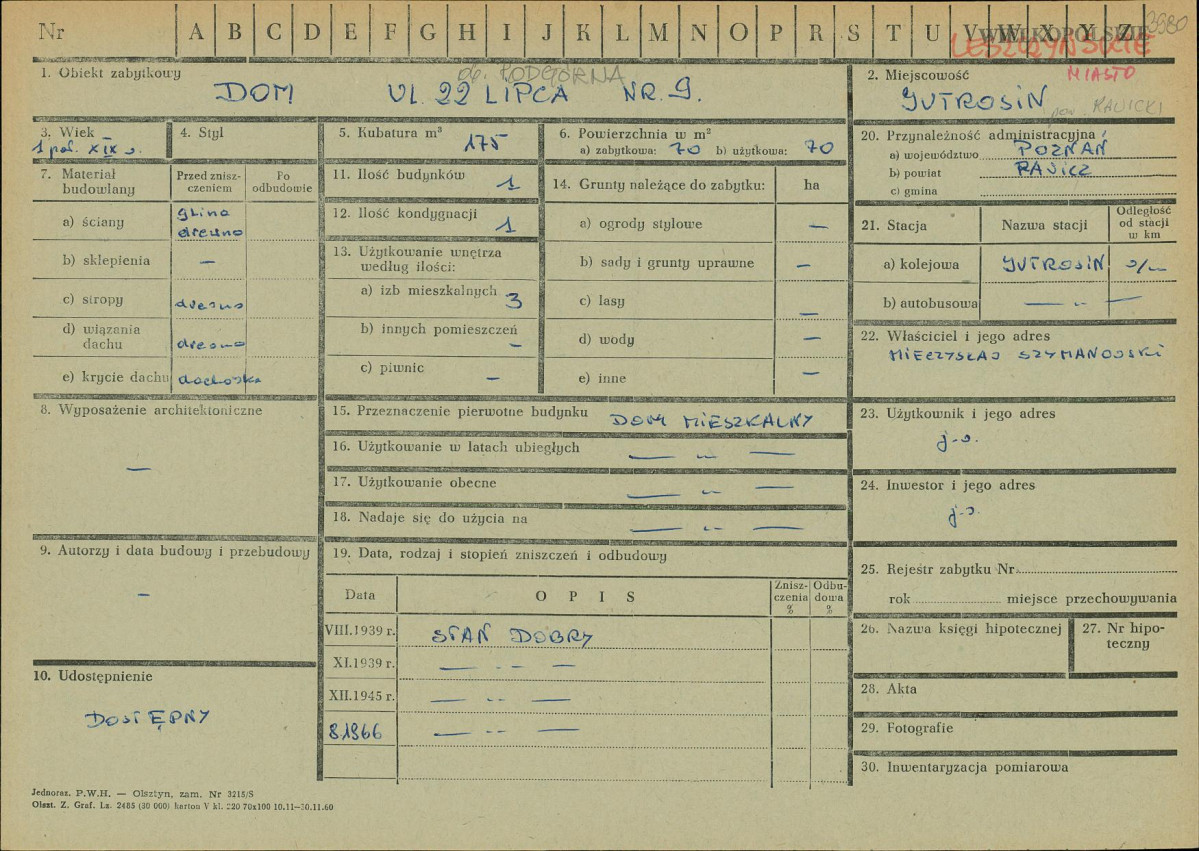 Nr A B C D E F G H I J K L M N O P R S T U V W X Y Z 3980
WIELKOPOLSKIE
LESZCZYŃSKIE
1. Obiekt zabytkowy
ob. PODGÓRNA
DOM UL. 22 LIPCA NR. 9.
2. Miejscowość
MIASTO
JUTROSIN
pow. RAWICKI
3. Wiek
1 poł. XIX w.
4. Styl
5. Kubatura m³
175
6. Powierzchnia w m²
a) zabytkowa: 70 b) użytkowa: 70
20. Przynależność administracyjna
a) województwo POZNAŃ
b) powiat RAWICZ
c) gmina
7. Materiał budowlany
Przed zniszczeniem
Po odbudowie
a) ściany glina drewno
b) sklepienia —
c) stropy drewno
d) wiązania dachu drewno
e) krycie dachu dachówka
11. Ilość budynków 1
12. Ilość kondygnacji 1
13. Użytkowanie wnętrza
według ilości:
a) izb mieszkalnych 3
b) innych pomieszczeń —
c) piwnic —
14. Grunty należące do zabytku: ha
a) ogrody stylowe —
b) sady i grunty uprawne —
c) lasy —
d) wody —
e) inne —
21. Stacja
Nazwa stacji
Odległość od stacji w km
a) kolejowa JUTROSIN
b) autobusowa — „ —
22. Właściciel i jego adres
MIECZYSŁAW SZYMANOWSKI
8. Wyposażenie architektoniczne
—
15. Przeznaczenie pierwotne budynku DOM MIESZKALNY
16. Użytkowanie w latach ubiegłych — „ —
17. Użytkowanie obecne — „ —
18. Nadaje się do użycia na — „ —
23. Użytkownik i jego adres
j.w.
24. Inwestor i jego adres
j.w.
9. Autorzy i data budowy i przebudowy
—
19. Data, rodzaj i stopień zniszczeń i odbudowy
Data
O P I S
Zniszczenia %
Odbudowa %
VIII.1939 r. STAN DOBRY
XI.1939 r. — „ —
XII.1945 r. — „ —
8 1966 — „ —
25. Rejestr zabytku Nr
rok miejsce przechowywania
26. Nazwa księgi hipotecznej
27. Nr hipoteczny
28. Akta
29. Fotografie
30. Inwentaryzacja pomiarowa
10. Udostępnienie
DOSTĘPNY
Jednoraz. P.W.H. — Olsztyn, zam. Nr 3215/S
Olszt. Z. Graf. Lz. 2485 (30 000) karton V kl. 220 70x100 10.11—30.11.60